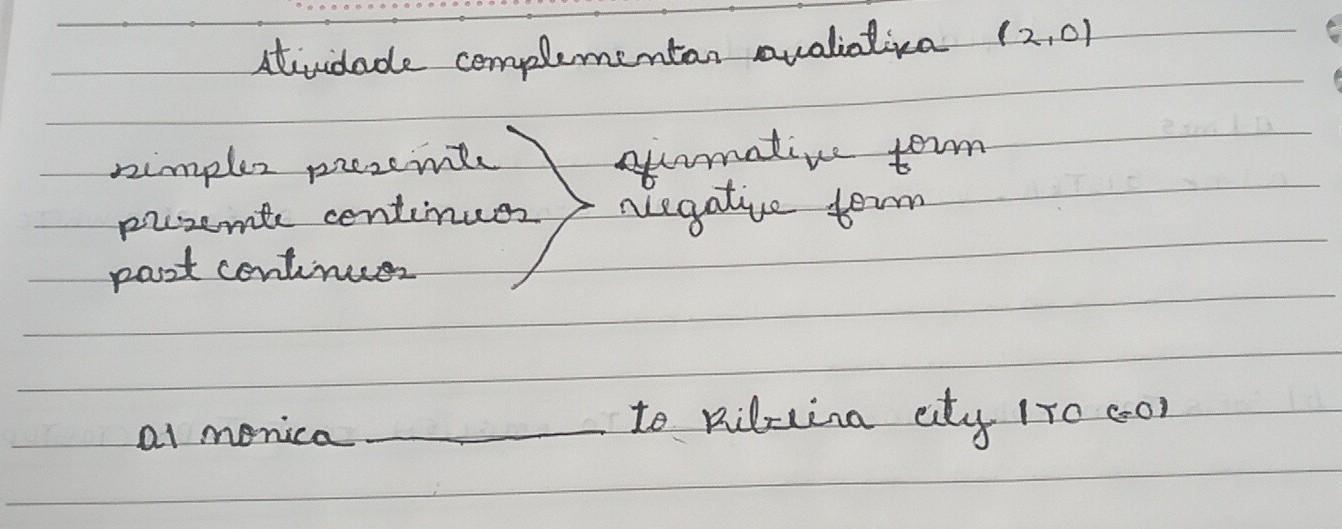 Atividade complementar avaliativa (2,0)
simples presente afirmative form
presente continuos negative form
past continuos
a) monica ________ to Ribeira city (TO GO)